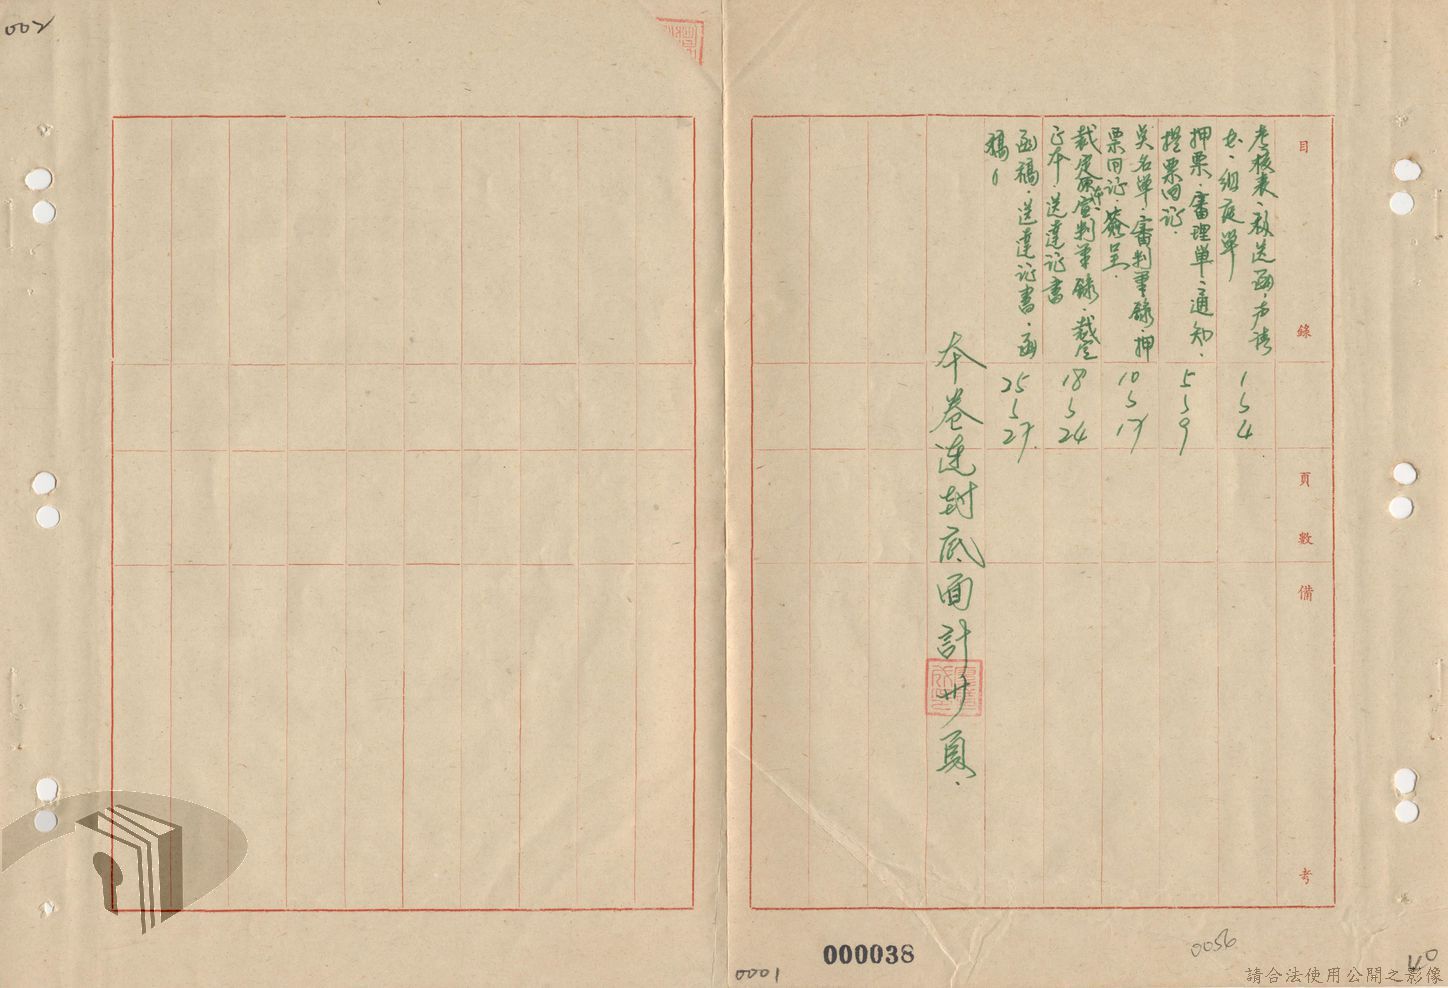 002
目錄
頁數
備考
考核表、移送函、聲請
書、組庭單
1
5
4
押票、審理單、通知、
提票回証、
5
5
9
吳名單、審判筆錄、押
票回証、簽呈、
10
5
17
裁定原本、宣判筆錄、裁定
正本、送達証書
18
5
24
函稿、送達証書、函
稿、
25
5
27
本卷連封底面計卅頁、
000038
0001
0056
請合法使用公開之影像